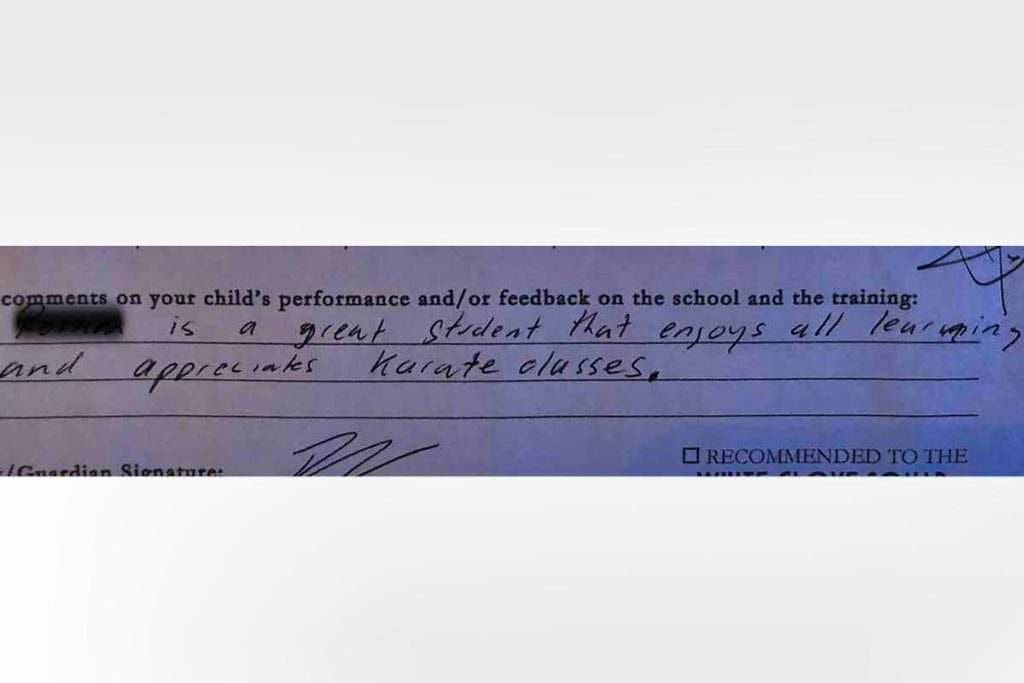 comments on your child's performance and/or feedback on the school and the training:
is a great student that enjoys all learning
and appreciates Karate classes.
/Guardian Signature:
☐ RECOMMENDED TO THE
WHITE GLOVE SQUAD